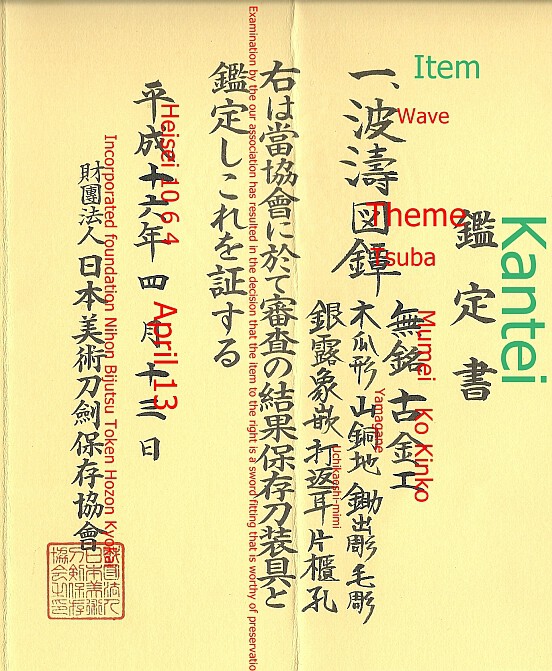 Kantei
鑑定書
Item
一、波濤図鐔
Wave
Theme
Tsuba
無銘 古金工
Mumei Ko Kinko
木瓜形 山銅地 鋤出彫 毛彫
Yamagane
銀露象嵌 打返耳 片櫃孔
Uchikaeshi-mimi
右は當協會に於て審査の結果保存刀装具と
鑑定しこれを証する
Examination by the our association has resulted in the decision that the item to the right is a sword fitting that is worthy of preservatio
平成十六年四月十三日
Heisei 10 6 4 April 13
財團法人日本美術刀劍保存協會
Incorporated foundation Nihon Bijutsu Token Hozon Kyokai